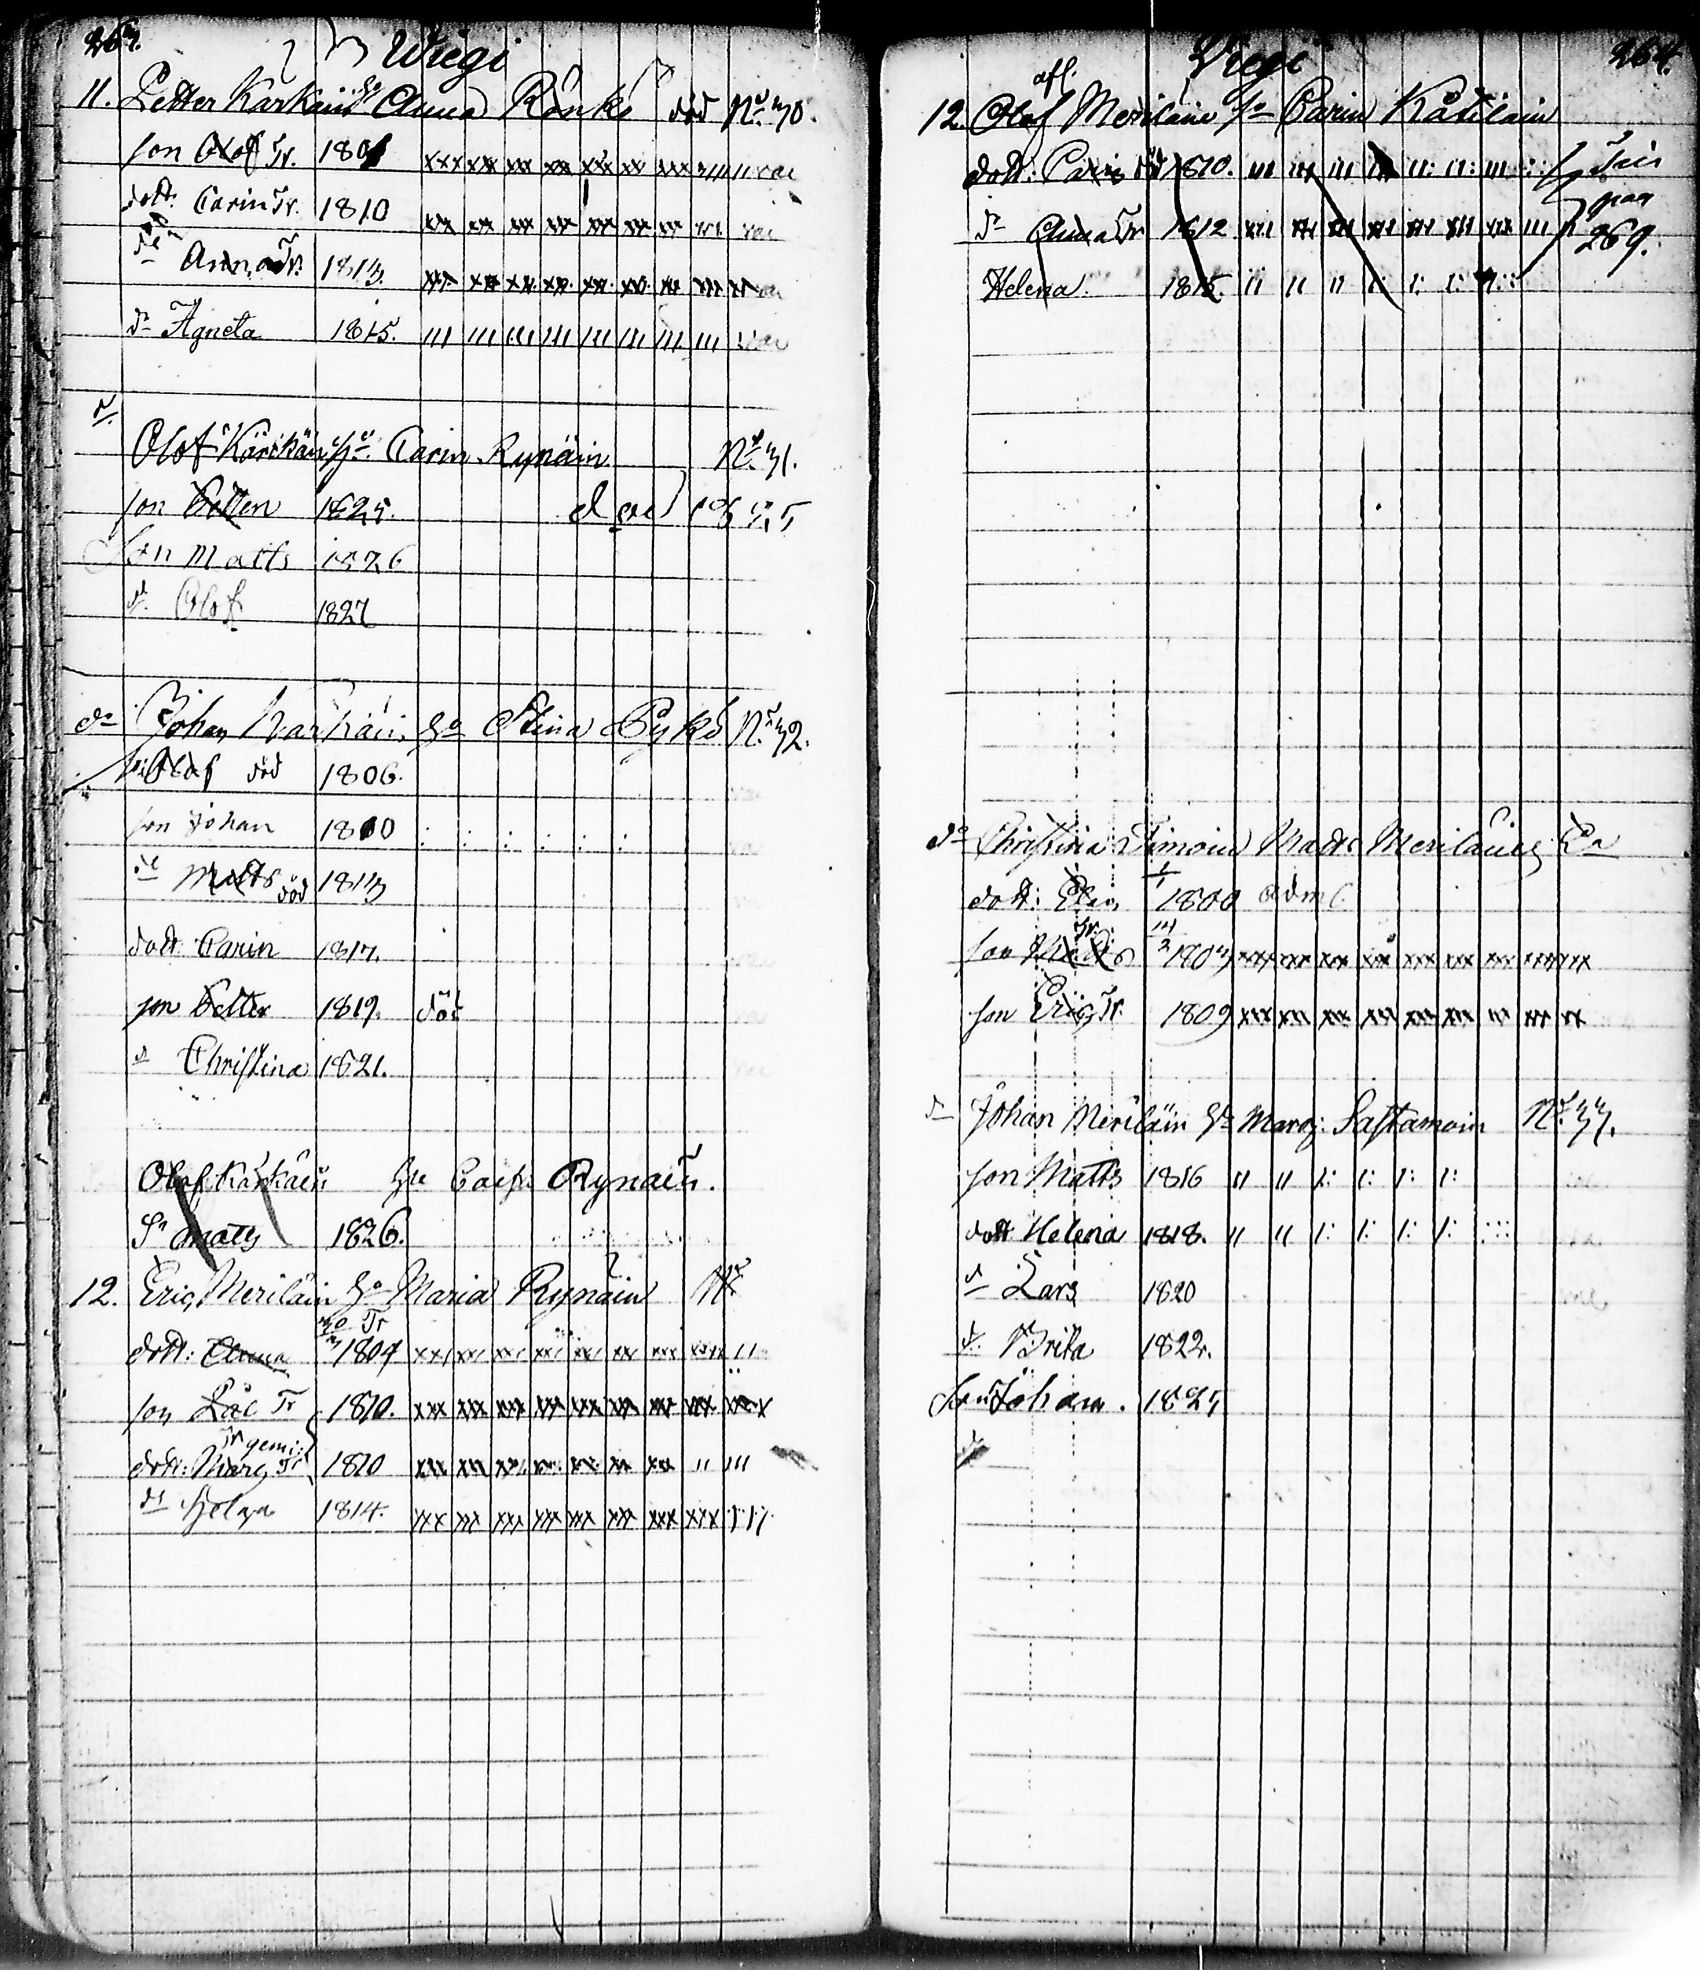 263.
Wiegi
11. Petter Karkain H:o Anna Rönkö död N:o 30.
son Olof Tr. 1801
dott: Carin Tr. 1810
d:o Anna Tr. 1813.
d:o Agneta 1815.
d:o
Olof Kärckäin H:o Carin Rynäin N:o 31.
son Petter 1825. död 1825
Son Matts 1826
d:o Olof 1827
d:o Johan Karkäin H:o Stina Pykö N:o 32.
Olof död 1806.
son Johan 1810
d:o Matts död 1813
dott: Carin 1817.
son Petter 1819. död
d:o Christina 1821.
Olof Karkäin H:u Caisa Rynäin.
S:n Mats 1826.
12. Eric Meriläin H:o Maria Rynäin N:o
dott: Anna 30/3 Tr 1804
son Tr 1810.
dott: Marg Tr gem: 1810
d:o Helga 1814.
Wiegi
264.
afl.
12. Olof Meriläin H:o Carin Kåsiläin
dott: Carin död 1810.
d:o Anna Tr 1812
Helena 1815.
pag
269.
d:o Christina Simoin Matts Meriläins Ea
dott: 1/1 1800 adm
son Matts Tr. 14/2 1803
son Eric Tr. 1809
d:o Johan Meriläin H:o Marg: Sastamoin N:o 33.
son Matts 1816
dott Helena 1818.
d:o Lars 1820
d:o Brita 1822.
Son Johan. 1825